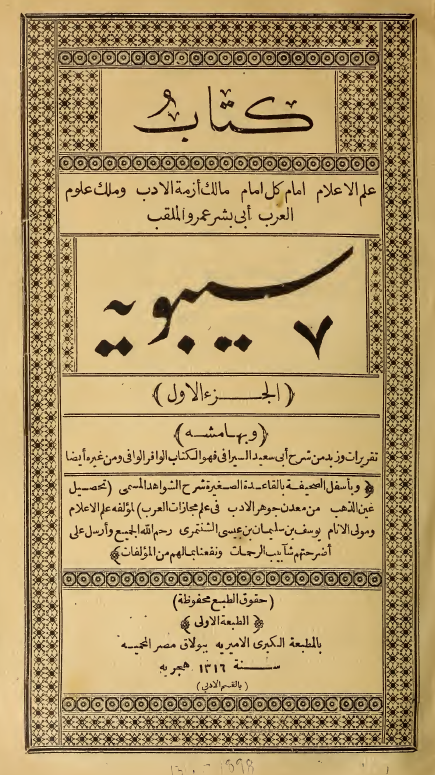 كتاب
علم الاعلام امام كل امام مالك أزمة الادب وملك علوم
العرب أبى بشر عمرو الملقب
سيبويه
(الجزء الاول)
(وبهامشه)
تقريرات وزبد من شرح أبى سعيد السيرافى فهو الكتاب الوافر الوافى ومن غيره أيضا
وبأسفل الصحيفة بالقاعدة الصغيرة شرح الشواهد المسمى (تحصيل
عين الذهب من معدن جوهر الادب فى علم مجازات العرب) لمؤلفه علم الاعلام
ومولى الانام يوسف بن سليمان بن عيسى الشنتمرى رحم الله الجميع وأرسل على
أضرحتهم شآبيب الرحمات ونفعنا بمالهم من المؤلفات
(حقوق الطبع محفوظة)
الطبعة الاولى
بالمطبعة الكبرى الاميريه ببولاق مصر المحميه
سنة ١٣١٦ هجريه
(بالقسم الادبى)